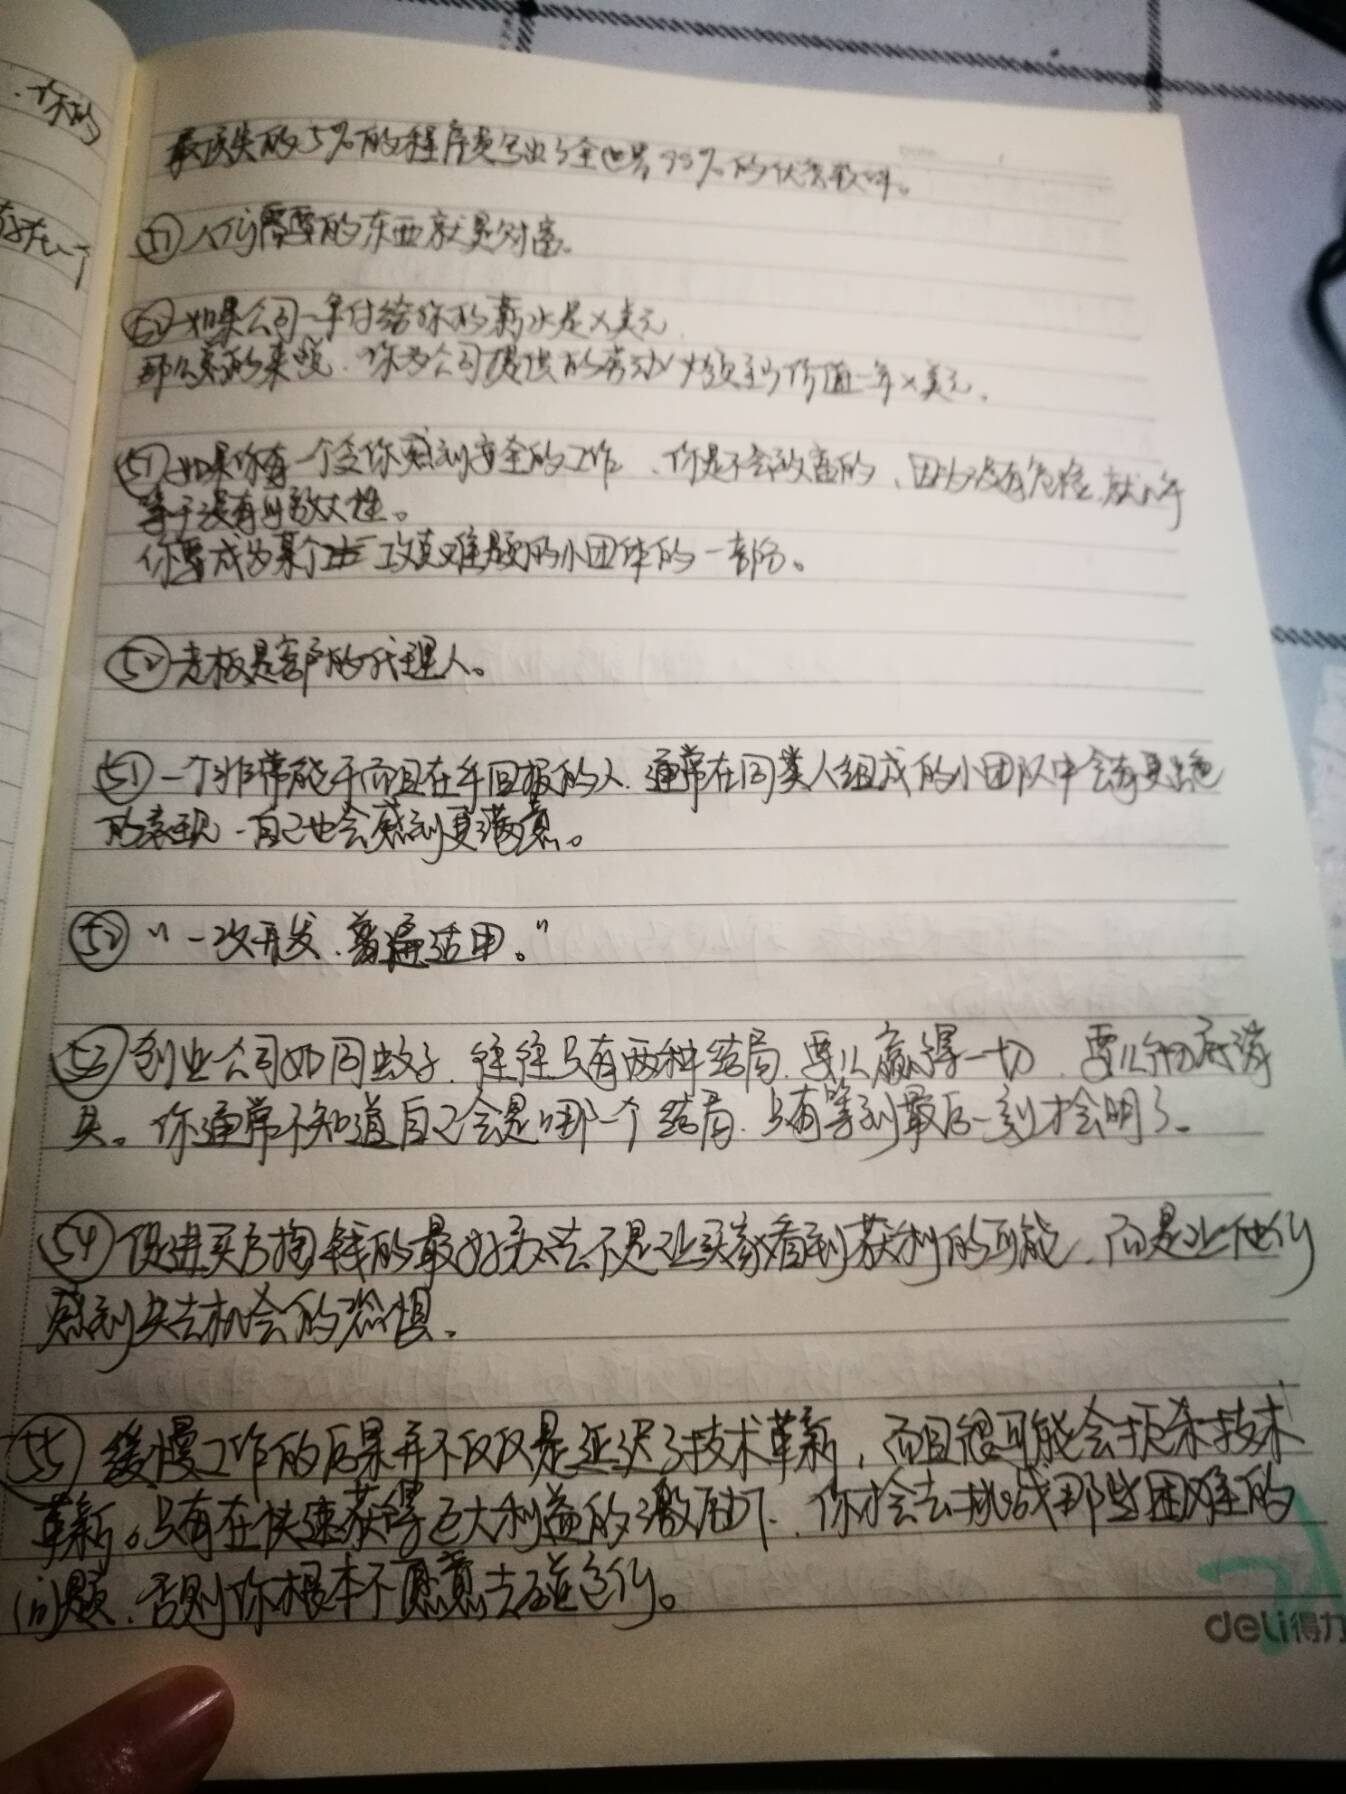 你的
存在一个
最顶尖的5%的程序员写出了全世界99%的优秀软件。
㊿人们需要的东西就是财富。
如果公司一年付给你的薪水是x美元
那么总的来说、你为公司提供的劳动必须至少价值一年x美元。
如果你有一个令你感到安全的工作、你是不会致富的、因为没有危险、就几乎
等于没有可放大性。
你要成为某个正攻克难题的小团体的一部分。
老板是客户的代理人。
51 一个非常能干而且在乎回报的人、通常在同类人组成的小团队中会有更出色
的表现、自己也会感到更满意。
52 “一次开发、普遍适用。”
53 创业公司如同蚊子、往往只有两种结局、要么赢得一切、要么彻底消
失。你通常不知道自己会是哪一个结局、只有等到最后一刻才会明了。
54 促进买方掏钱的最好办法不是让买家看到获利的可能、而是让他们
感到失去机会的恐惧。
55 缓慢工作的后果并不仅仅是延迟了技术革新，而且很可能会扼杀技术
革新。只有在快速获得巨大利益的激励下、你才会去挑战那些困难的
问题、否则你根本不愿意去碰它们。
deli得力